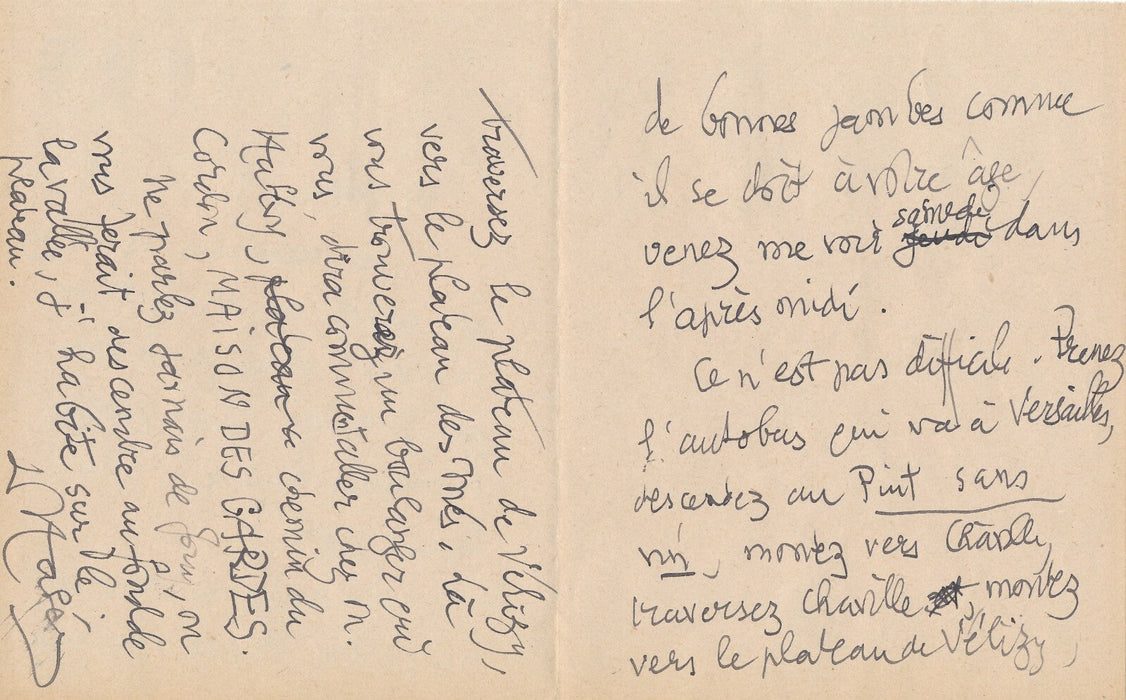 de bonnes jambes comme
il se doit à votre âge,
venez me voir samedi dans
l'après midi.
Ce n'est pas difficile. Prenez
l'autobus qui va à Versailles,
descendez au Puit sans
vin, montez vers Chaville,
traversez Chaville, montez
vers le plateau de Vélizy,
traversez le plateau de Vélizy,
vers le plateau des Metz, là
vous trouverez un boulanger qui
vous dira comment aller chez M.
chemin du
Cordon, MAISON DES CARTES.
Ne parlez jamais de Jouy, on
vous ferait descendre au fond de
la vallée, et j'habite sur le
plateau.